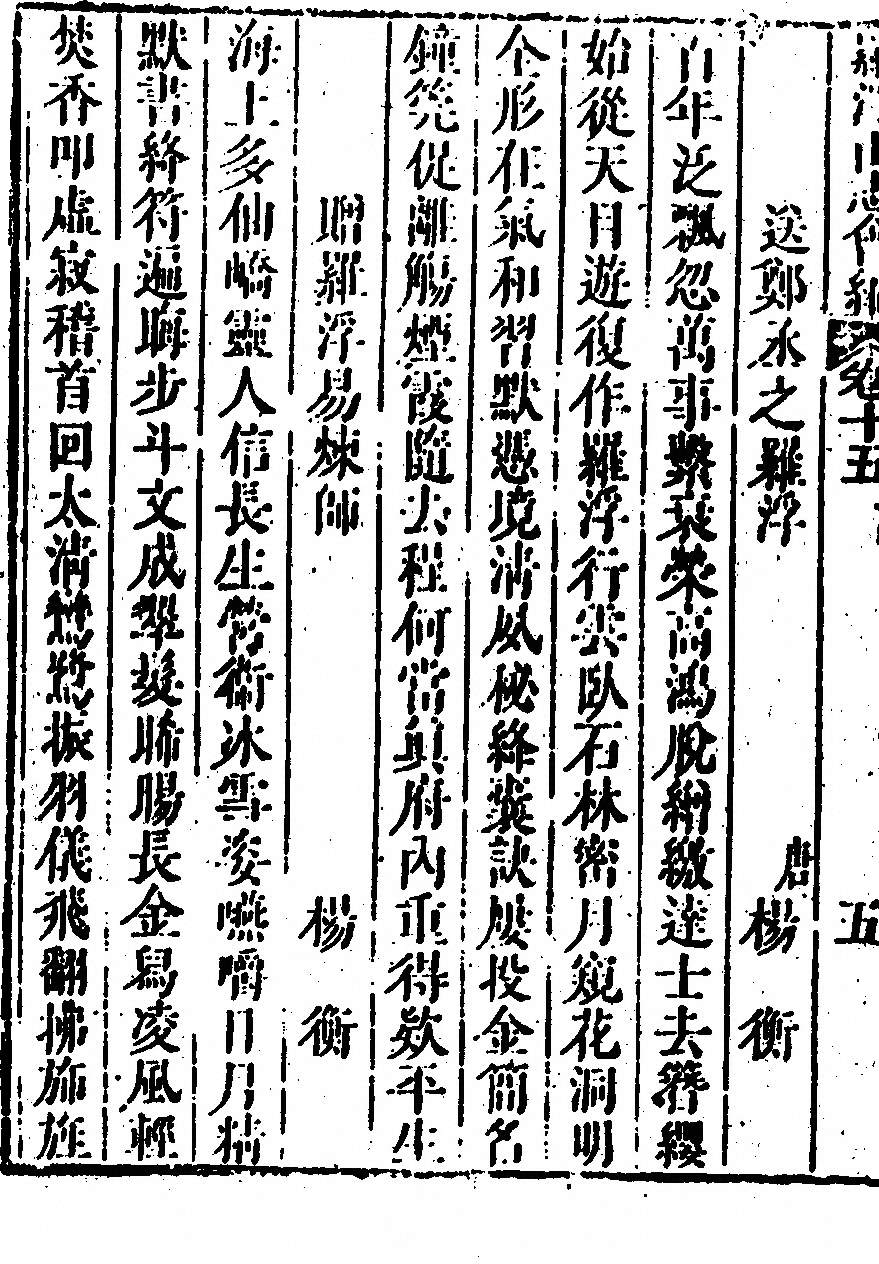 羅浮山志會編 卷十五 五
送鄭丞之羅浮 唐 楊衡
百年泛飄忽萬事繫衰榮高鴻脫網繳達士去簪纓
始從天目遊復作羅浮行雲臥石林密月窺花洞明
全形在氣和習默憑境清夙秘絳囊訣屢投金簡名
鐘筦促離觴煙霞隨去程何當真府內重得款平生
贈羅浮易煉師 楊衡
海上多仙嶠靈人信長生榮衛冰雪姿嚥嚼日月精
默書絳符遍晦步斗文成翠髮聏腸長金舄凌風輕
焚香叩虛寂稽首回太清鸞鷺振羽儀飛翻拂旆旌